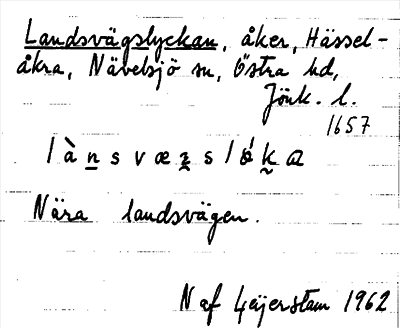 Landsvägslyckan, åker, Hässel-
åkra, Nävelsjö sn, Östra hd,
Jönk. l.
1657
l à n s v æ z s l ǿ k a
Nära landsvägen.
N af Geijerstam 1962